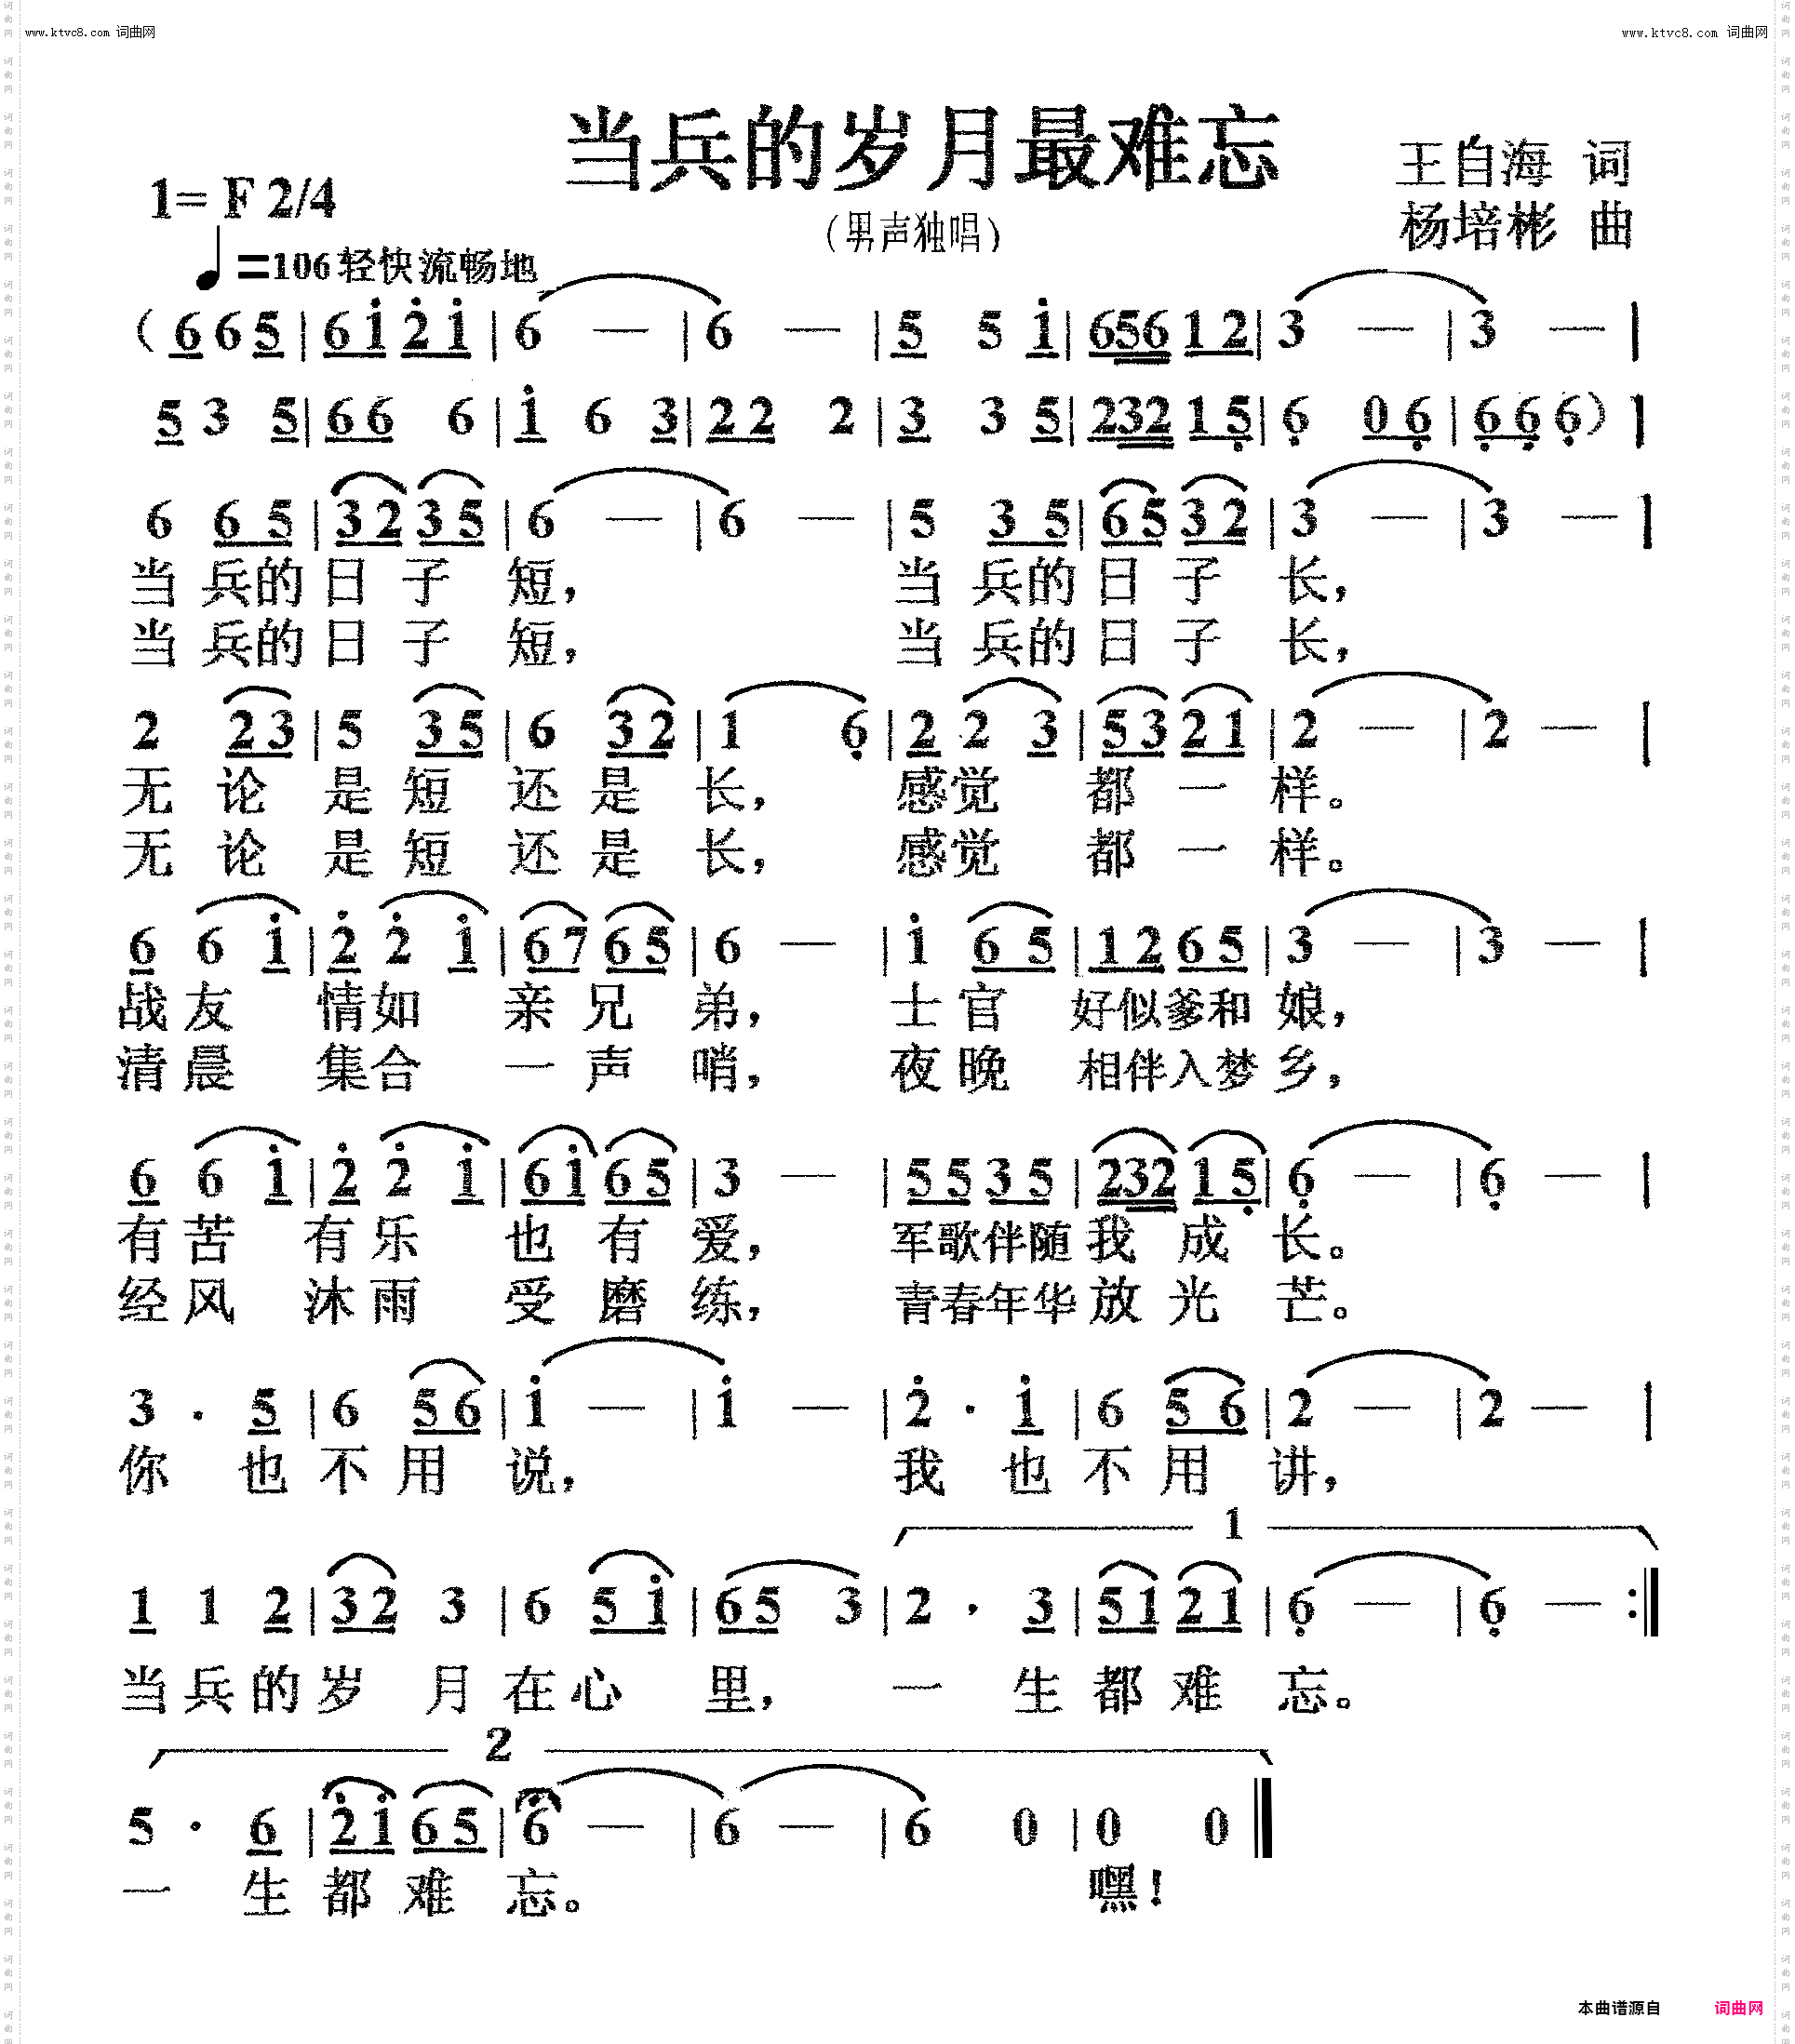 www.ktvc8.com 词曲网
www.ktvc8.com 词曲网
当兵的岁月最难忘
(男声独唱)
王自海 词
杨培彬 曲
1= F 2/4
♩=106 轻快流畅地
( 6 6 5 | 6 1̇ 2̇ 1̇ | 6 — | 6 — | 5 5 1̇ | 656 1 2 | 3 — | 3 — |
5 3 5 | 6 6 6 | 1̇ 6 3 | 2 2 2 | 3 3 5 | 232 1 5̣ | 6̣ 0 6̣ | 6̣ 6̣ 6̣ ) |
6 6 5 | 3 2 3 5 | 6 — | 6 — | 5 3 5 | 6 5 3 2 | 3 — | 3 — |
当 兵的 日 子 短, 当 兵的 日 子 长,
当 兵的 日 子 短, 当 兵的 日 子 长,
2 2 3 | 5 3 5 | 6 3 2 | 1 6̣ | 2 2 3 | 5 3 2 1 | 2 — | 2 — |
无 论 是 短 还 是 长, 感觉 都 一 样。
无 论 是 短 还 是 长, 感觉 都 一 样。
6 6 1̇ | 2̇ 2̇ 1̇ | 6 7 6 5 | 6 — | 1̇ 6 5 | 1 2 6 5 | 3 — | 3 — |
战 友 情如 亲 兄 弟, 士 官 好似爹和 娘,
清 晨 集合 一 声 哨, 夜 晚 相伴入梦 乡,
6 6 1̇ | 2̇ 2̇ 1̇ | 6 1̇ 6 5 | 3 — | 5 5 3 5 | 232 1 5̣ | 6̣ — | 6̣ — |
有 苦 有 乐 也 有 爱, 军歌伴随 我 成 长。
经 风 沐 雨 受 磨 练, 青春年华 放 光 芒。
3 . 5 | 6 5 6 | 1̇ — | 1̇ — | 2̇ . 1̇ | 6 5 6 | 2 — | 2 — |
你 也 不 用 说, 我 也 不 用 讲,
1
1 1 2 | 3 2 3 | 6 5 1̇ | 6 5 3 | 2 . 3 | 5 1 2 1 | 6̣ — | 6̣ — :|
当 兵 的 岁 月 在 心 里, 一 生 都 难 忘。
2
5 . 6 | 2̇ 1̇ 6 5 | 6 — | 6 — | 6 0 | 0 0 |
一 生 都 难 忘。 嘿!
本曲谱源自 词曲网